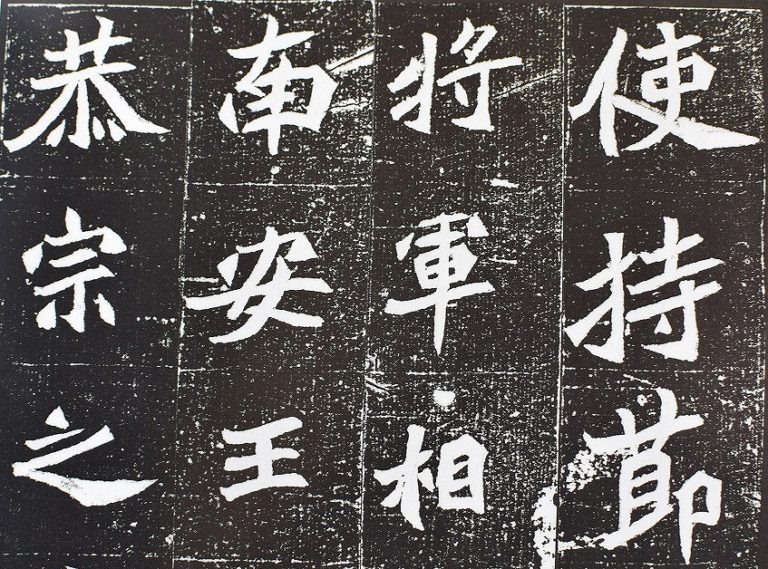 使持節
將軍相
南安王
恭宗之